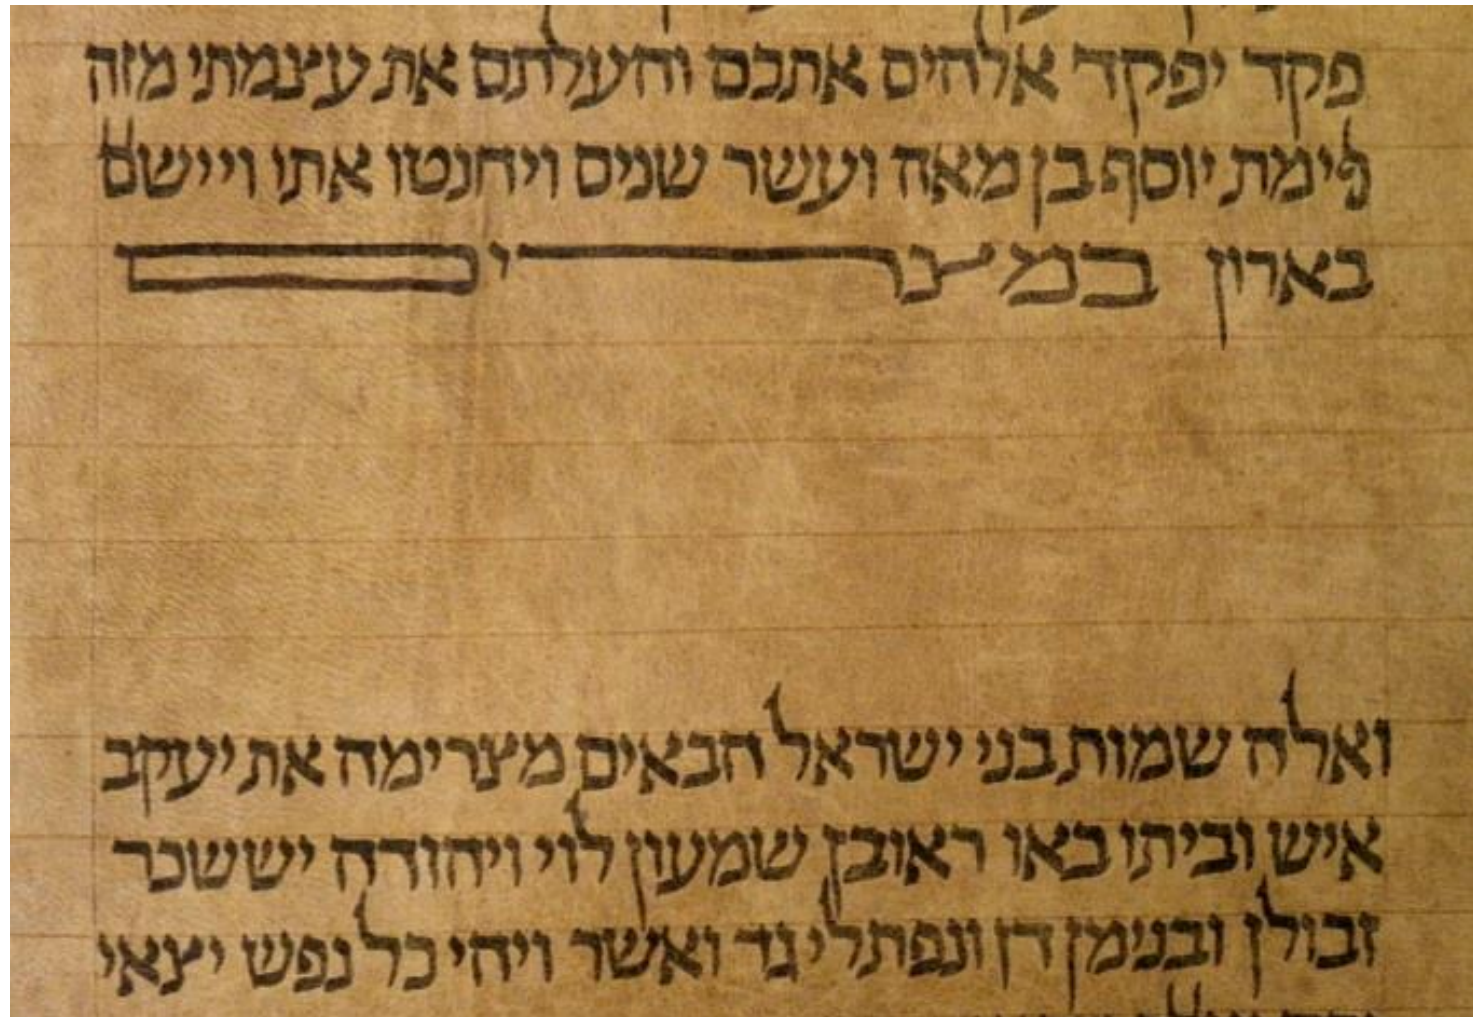 פקד יפקד אלהים אתכם והעלתם את עצמתי מזה
וימת יוסף בן מאה ועשר שנים ויחנטו אתו ויישם
בארון במצרים
ואלה שמות בני ישראל הבאים מצרימה את יעקב
איש וביתו באו ראובן שמעון לוי ויהודה יששכר
זבולן ובנימן דן ונפתלי גד ואשר ויהי כל נפש יצאי